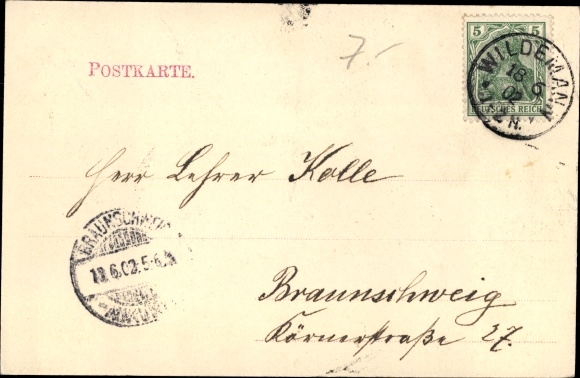 7.-
5 5
DEUTSCHES REICH
WILDEMANN
18 6
02
N.
POSTKARTE.
Herr Lehrer Kolle
BRAUNSCHWEIG
18.6.02.5-6.N
Braunschweig
Körnerstraße 27.